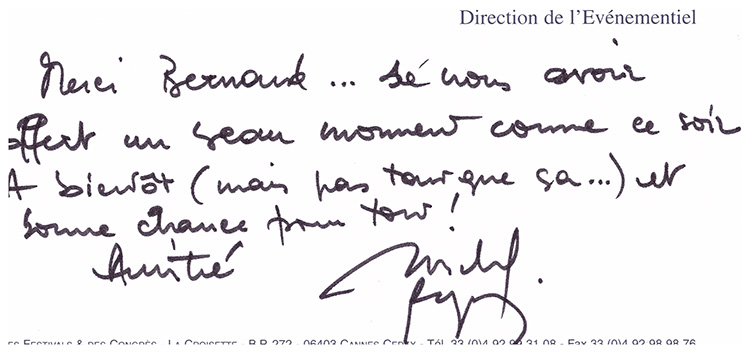 Direction de l'Evénementiel
Merci Bernard... de nous avoir
offert un beau moment comme ce soir
A bientôt (mais pas tant que ça...) et
bonne chance pour tout !
Amitié
Michel
ES FESTIVALS & DES CONGRÈS - LA CROISETTE - B.P. 272 - 06403 CANNES CEDEX - Tél. 33 (0)4 92 99 31 08 - Fax 33 (0)4 92 98 98 76